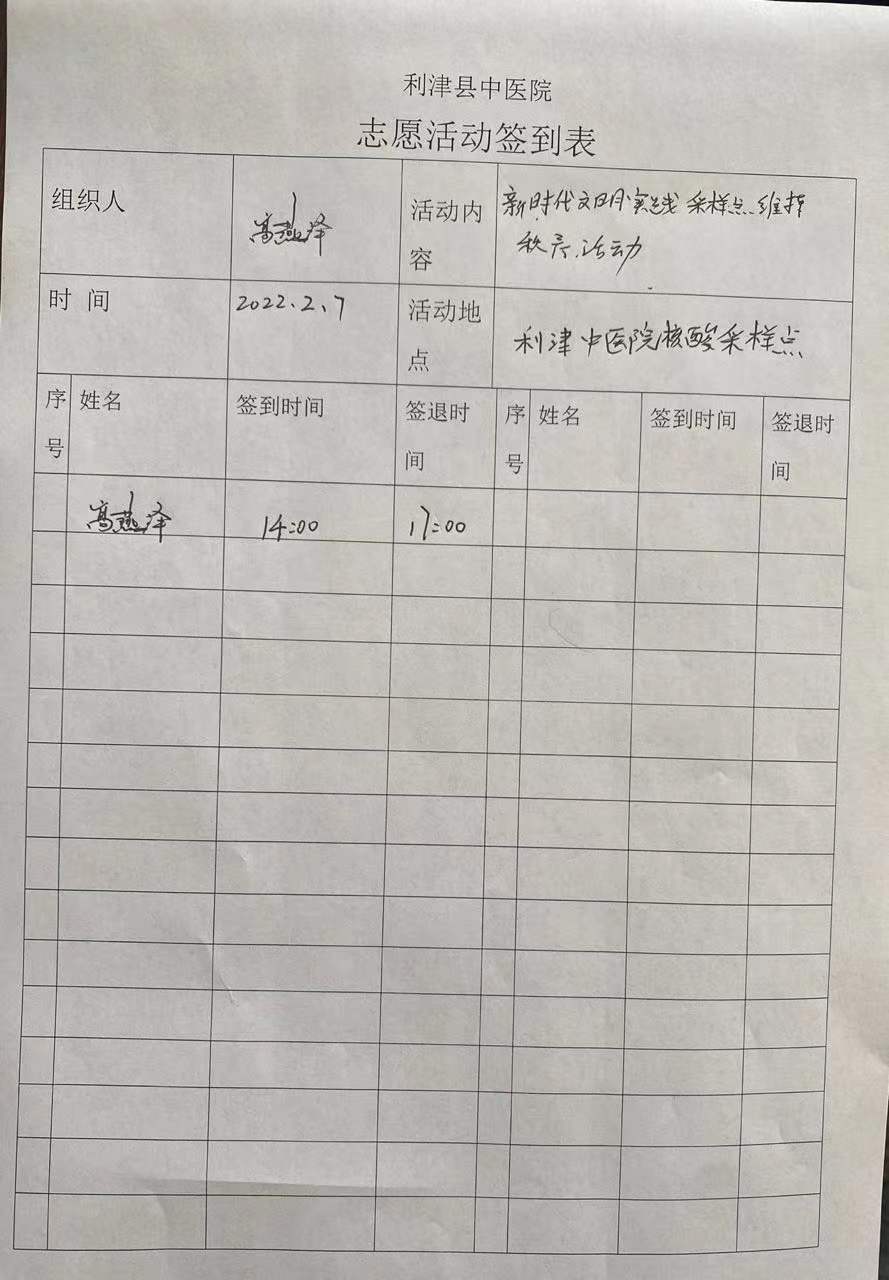 利津县中医院
志愿活动签到表
组织人 高燕泽 活动内容 新时代文明实践采样点维护
秩序活动
时 间 2022.2.7 活动地点 利津中医院核酸采样点
序号 姓名 签到时间 签退时间 序号 姓名 签到时间 签退时间
高燕泽 14:00 17:00